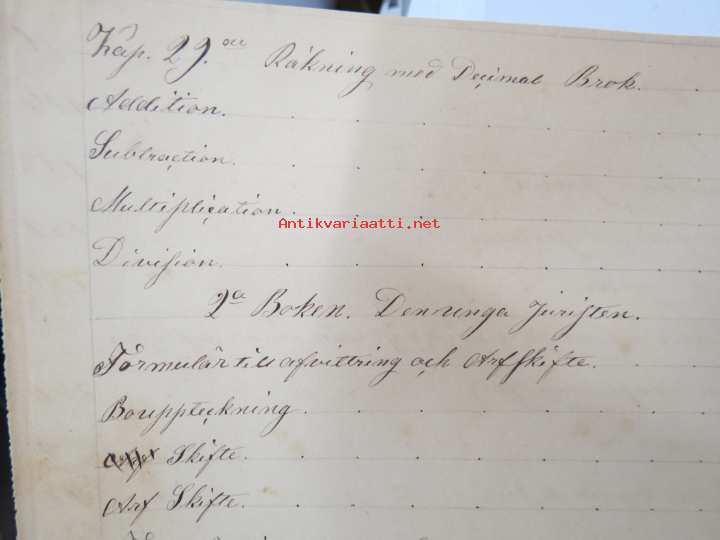 Kap. 29. Räkning med Decimal Bråk.
Addition.
Subtraction.
Multiplication.
Antikvariaatti.net
Division.
2a Boken. Den unga Juristen.
Formulär till afvittring och Arfskifte.
Bouppteckning.
Skifte.
Arf Skifte.